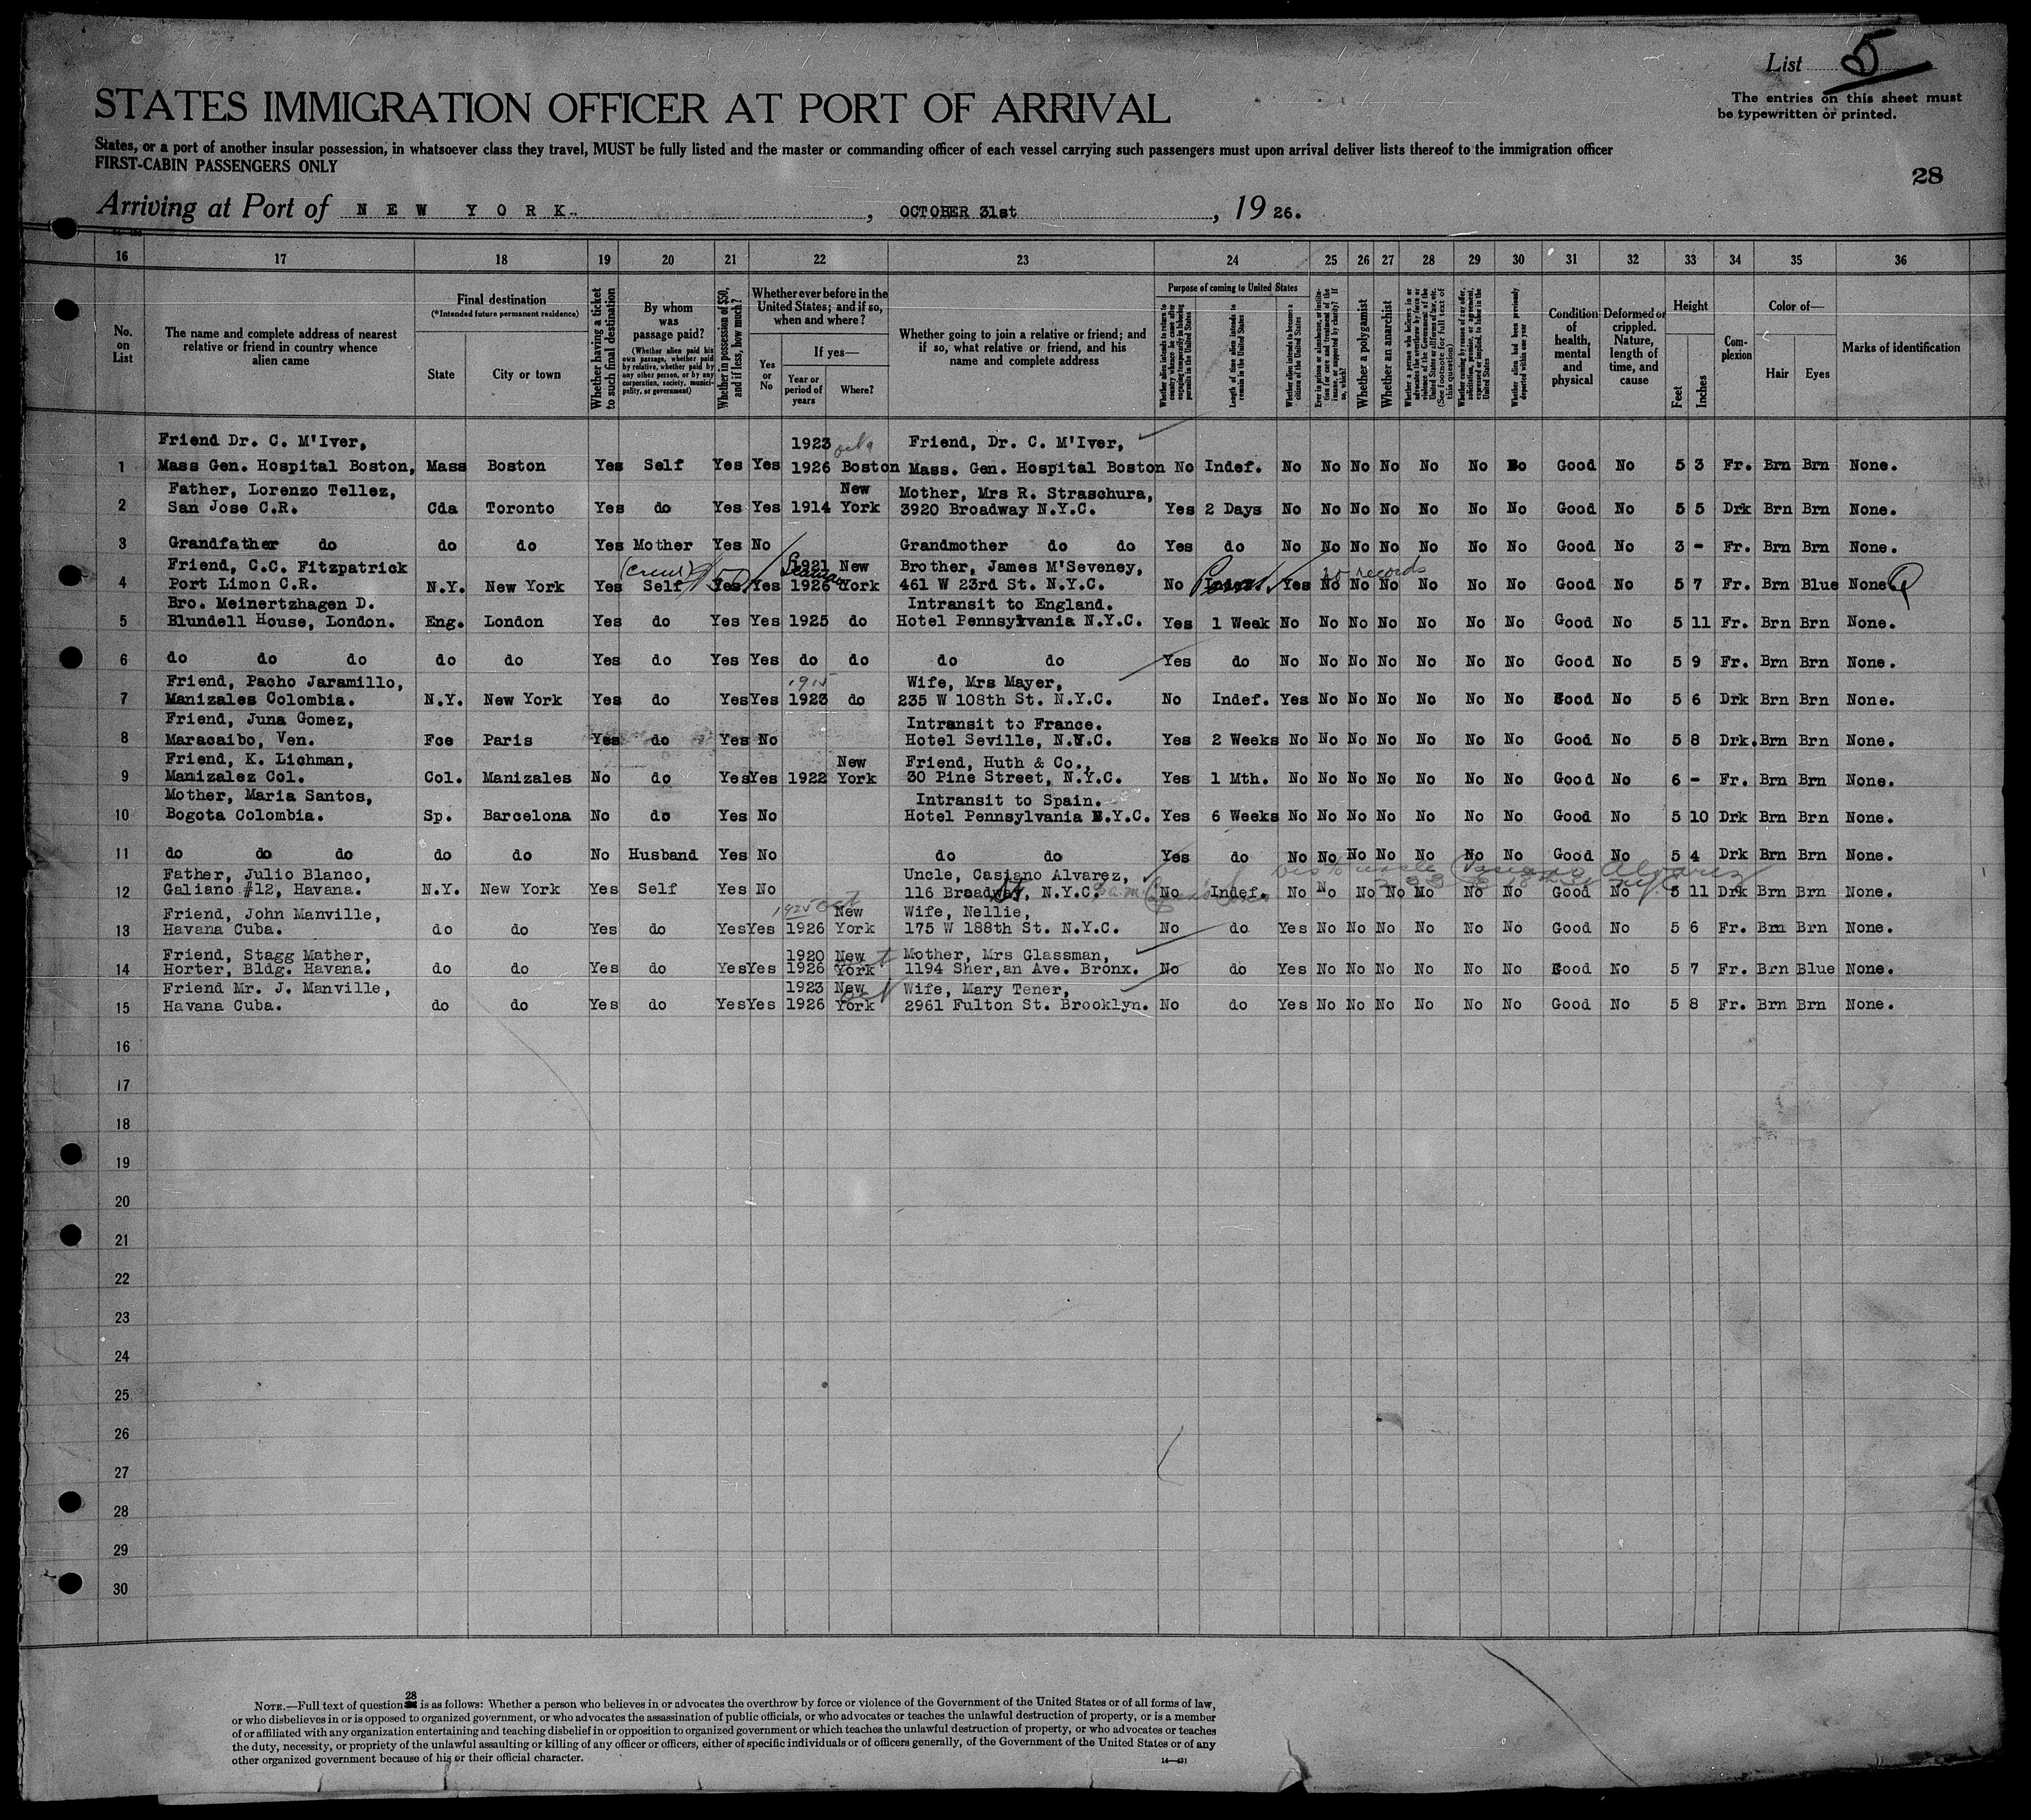 List 5
STATES IMMIGRATION OFFICER AT PORT OF ARRIVAL
The entries on this sheet must
be typewritten or printed.
States, or a port of another insular possession, in whatsoever class they travel, MUST be fully listed and the master or commanding officer of each vessel carrying such passengers must upon arrival deliver lists thereof to the immigration officer
FIRST-CABIN PASSENGERS ONLY
28
Arriving at Port of NEW YORK. , OCTOBER 31st , 19 26.
16 17 18 19 20 21 22 23 24 25 26 27 28 29 30 31 32 33 34 35 36
No. on List
The name and complete address of nearest relative or friend in country whence alien came
Final destination
(*Intended future permanent residence)
State
City or town
Whether having a ticket to such final destination
By whom was passage paid?
(Whether alien paid his own passage, whether paid by relative, whether paid by any other person, or by any corporation, society, municipality, or government)
Whether in possession of $50, and if less, how much?
Whether ever before in the United States; and if so, when and where?
Yes or No
If yes—
Year or period of years
Where?
Whether going to join a relative or friend; and if so, what relative or friend, and his name and complete address
Purpose of coming to United States
Whether alien intends to return to country whence he came after engaging temporarily in laboring pursuits in the United States
Length of time alien intends to remain in the United States
Whether alien intends to become a citizen of the United States
Ever in prison or almshouse, or institution for care and treatment of the insane, or supported by charity? If so, which?
Whether a polygamist
Whether an anarchist
Whether a person who believes in or advocates the overthrow by force or violence of the Government of the United States or all forms of law, etc. (See footnote for full text of this question)
Whether coming by reason of any offer, solicitation, promise, or agreement, expressed or implied, to labor in the United States
Whether alien had been previously deported within one year
Condition of health, mental and physical
Deformed or crippled. Nature, length of time, and cause
Height
Feet
Inches
Complexion
Color of—
Hair
Eyes
Marks of identification
Friend Dr. C. M'Iver, 1923 Friend, Dr. C. M'Iver,
1 Mass Gen. Hospital Boston, Mass Boston Yes Self Yes Yes 1926 Boston Mass. Gen. Hospital Boston No Indef. No No No No No No No Good No 5 3 Fr. Brn Brn None.
Father, Lorenzo Tellez, New Mother, Mrs R. Straschura,
2 San Jose C.R. Cda Toronto Yes do Yes Yes 1914 York 3920 Broadway N.Y.C. Yes 2 Days No No No No No No No Good No 5 5 Drk Brn Brn None.
3 Grandfather do do do Yes Mother Yes No Grandmother do do Yes do No No No No No No No Good No 3 - Fr. Brn Brn None.
Friend, C.C. Fitzpatrick 1921 New Brother, James M'Seveney, no records
4 Port Limon C.R. N.Y. New York Yes Self Yes. Yes 1926 York 461 W 23rd St. N.Y.C. No Indef. Yes No No No No No No Good No 5 7 Fr. Brn Blue None.
Bro. Meinertzhagen D. Intransit to England.
5 Blundell House, London. Eng. London Yes do Yes Yes 1925 do Hotel Pennsylvania N.Y.C. Yes 1 Week No No No No No No No Good No 5 11 Fr. Brn Brn None.
6 do do do do do Yes do Yes Yes do do do do Yes do No No No No No No No Good No 5 9 Fr. Brn Brn None.
Friend, Pacho Jaramillo, 1915 Wife, Mrs Mayer,
7 Manizales Colombia. N.Y. New York Yes do Yes Yes 1923 do 235 W 108th St. N.Y.C. No Indef. Yes No No No No No No Good No 5 6 Drk Brn Brn None.
Friend, Juna Gomez, Intransit to France.
8 Maracaibo, Ven. Fce Paris Yes do Yes No Hotel Seville, N.Y.C. Yes 2 Weeks No No No No No No No Good No 5 8 Drk. Brn Brn None.
Friend, K. Lichman, New Friend, Huth & Co.,
9 Manizalez Col. Col. Manizales No do Yes Yes 1922 York 30 Pine Street, N.Y.C. Yes 1 Mth. No No No No No No No Good No 6 - Fr. Brn Brn None.
Mother, Maria Santos, Intransit to Spain.
10 Bogota Colombia. Sp. Barcelona No do Yes No Hotel Pennsylvania N.Y.C. Yes 6 Weeks No No No No No No No Good No 5 10 Drk Brn Brn None.
11 do do do do do No Husband Yes No do do Yes do No No No No No No No Good No 5 4 Drk Brn Brn None.
Father, Julio Blanco, Uncle, Casiano Alvarez, to uncle Casiano Alvarez
12 Galiano #12, Havana. N.Y. New York Yes Self Yes No 116 Broadway, N.Y.C. No Indef. No No No No No No No Good No 5 11 Drk Brn Brn None.
Friend, John Manville, 1925 oct New Wife, Nellie,
13 Havana Cuba. do do Yes do Yes Yes 1926 York 175 W 188th St. N.Y.C. No do Yes No No No No No No Good No 5 6 Fr. Brn Brn None.
Friend, Stagg Mather, 1920 New Mother, Mrs Glassman,
14 Horter, Bldg. Havana. do do Yes do Yes Yes 1926 York 1194 Sher,an Ave. Bronx. No do Yes No No No No No No Good No 5 7 Fr. Brn Blue None.
Friend Mr. J. Manville, 1923 New Wife, Mary Tener,
15 Havana Cuba. do do Yes do Yes Yes 1926 York oct 2961 Fulton St. Brooklyn. No do Yes No No No No No No Good No 5 8 Fr. Brn Brn None.
16
17
18
19
20
21
22
23
24
25
26
27
28
29
30
NOTE.—Full text of question 28 is as follows: Whether a person who believes in or advocates the overthrow by force or violence of the Government of the United States or of all forms of law,
or who disbelieves in or is opposed to organized government, or who advocates the assassination of public officials, or who advocates or teaches the unlawful destruction of property, or is a member
of or affiliated with any organization entertaining and teaching disbelief in or opposition to organized government or which teaches the unlawful destruction of property, or who advocates or teaches
the duty, necessity, or propriety of the unlawful assaulting or killing of any officer or officers, either of specific individuals or of officers generally, of the Government of the United States or of any
other organized government because of his or their official character.
14—431